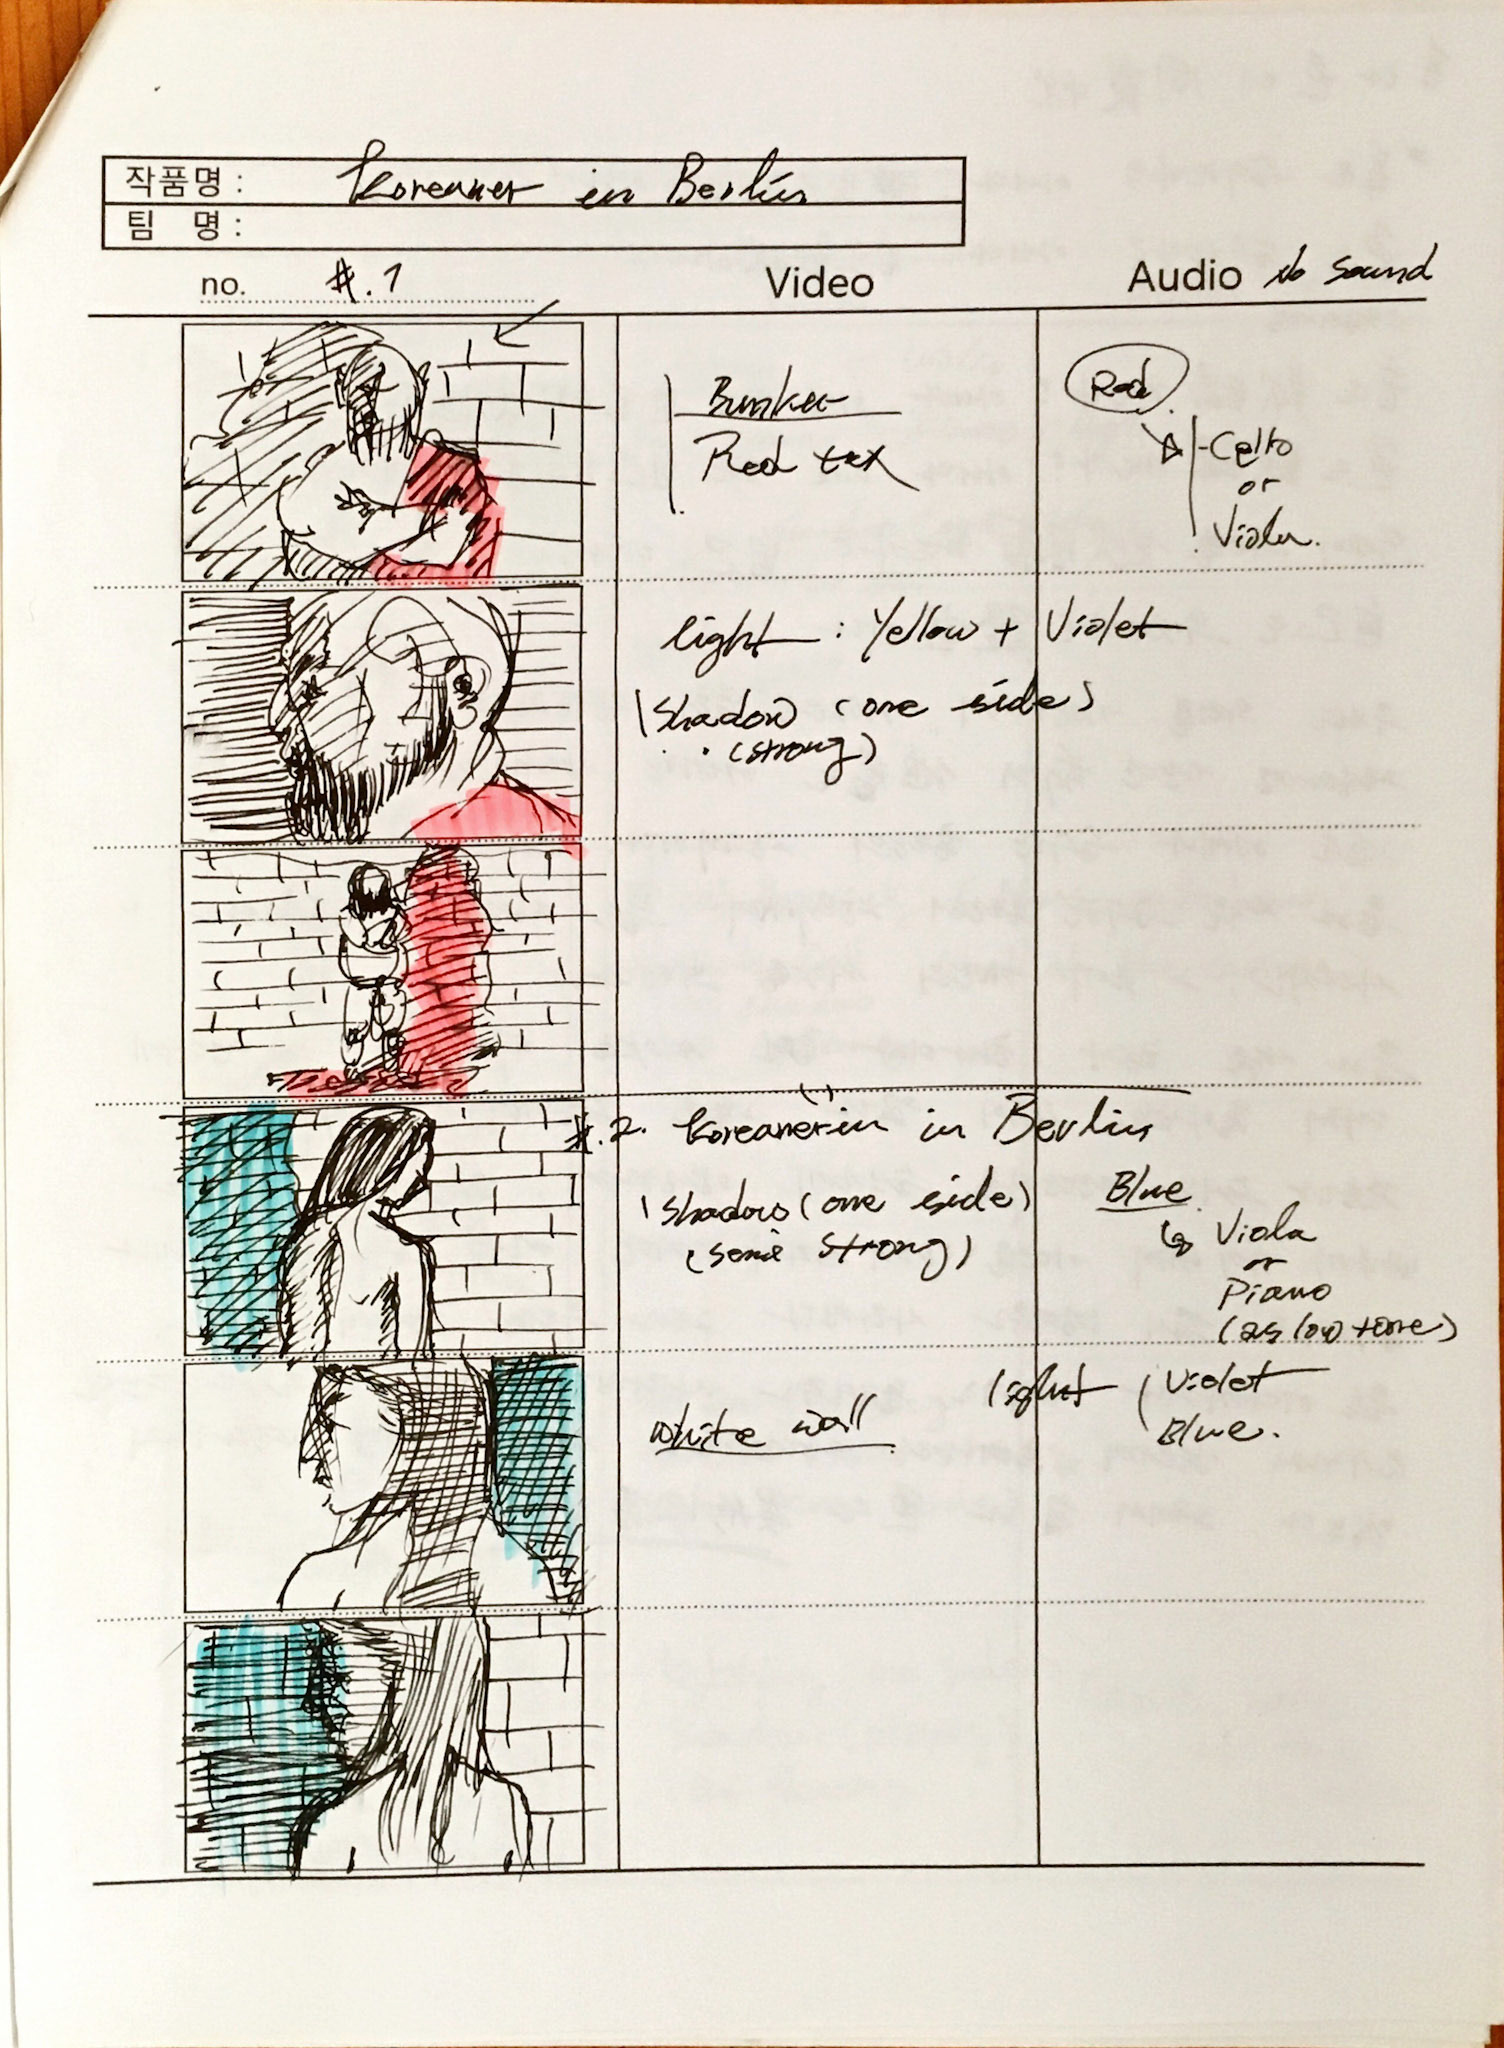 작품명 : Koreaner in Berlin
팀 명 :
no. #.1 Video Audio No Sound
Bunker
Red
Red
-Cello
or
Viola.
light : Yellow + Violet
Shadow (one side)
(strong)
#.2. Koreanerin in Berlin
Shadow (one side)
(some strong)
Blue
Viola
or
Piano
(as low tone)
White wall
light ( Violet
Blue.